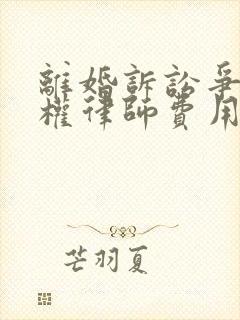 離婚訴訟爭
權律師費用
芒羽夏